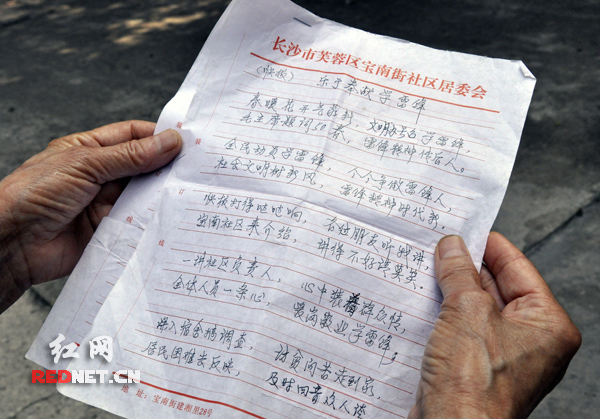 长沙市芙蓉区宝南街社区居委会
(快板) 乐于奉献学雷锋
春暖花开 文明号召学雷锋,
毛主席题词50春, 雷锋精神传后人。
全民动员学雷锋, 个个争做雷锋人,
社会文明树新风, 雷锋精神时代新。
快板打得哒哒响, 台边朋友听我讲,
宝南社区来介绍, 讲得不好请莫笑。
一讲社区负责人, 心中装着群众情,
全体人员一条心, 爱岗敬业学雷锋。
进入宿舍精调查, 访贫问苦走到家,
居民困难去反映, 及时回音众人
红网
REDNET.CN
宝南街建湘里28号